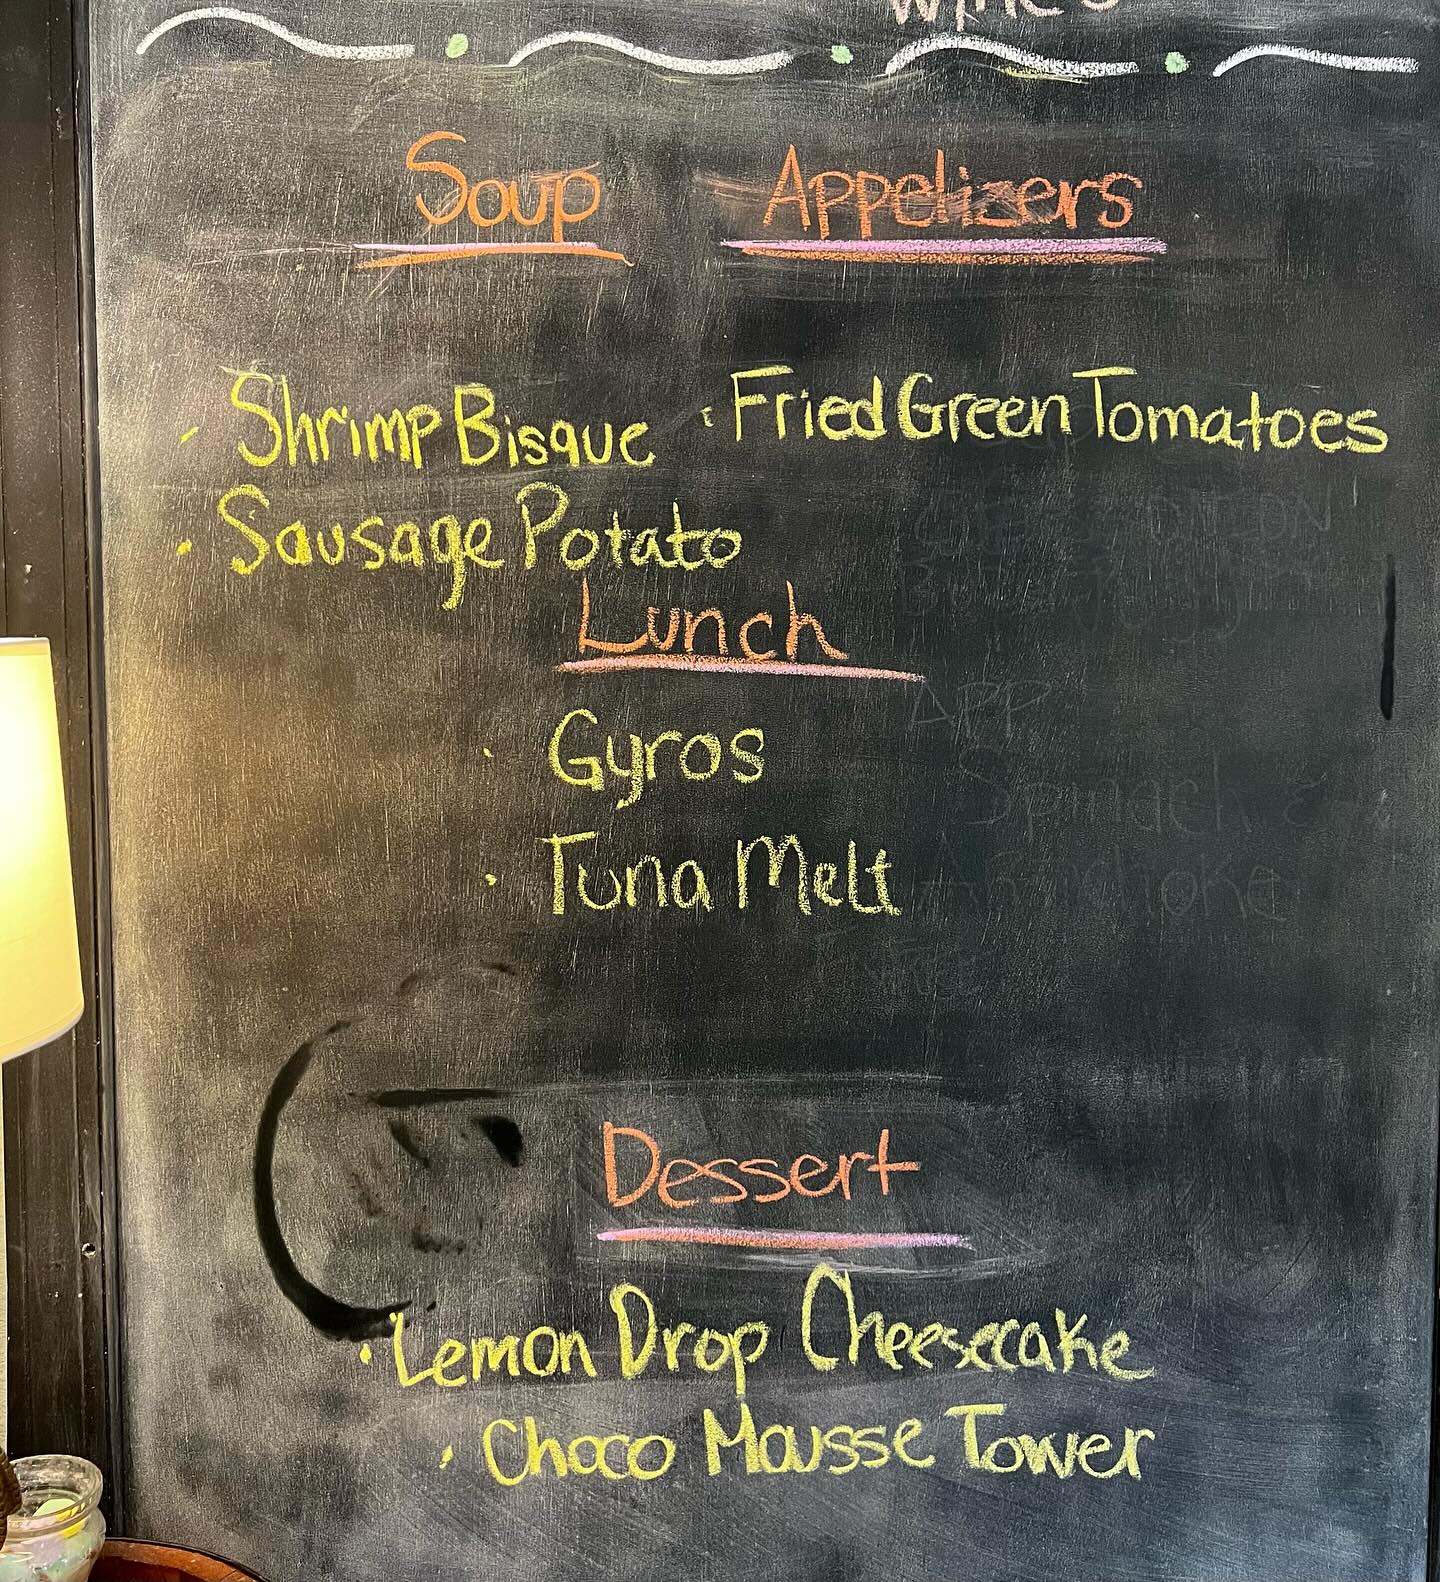 Wine's
Soup
Appetizers
Shrimp Bisque
Fried Green Tomatoes
Sausage Potato
Lunch
Gyros
APP
Spinach &
Tuna Melt
Artichoke
Dessert
Lemon Drop Cheesecake
Choco Mousse Tower